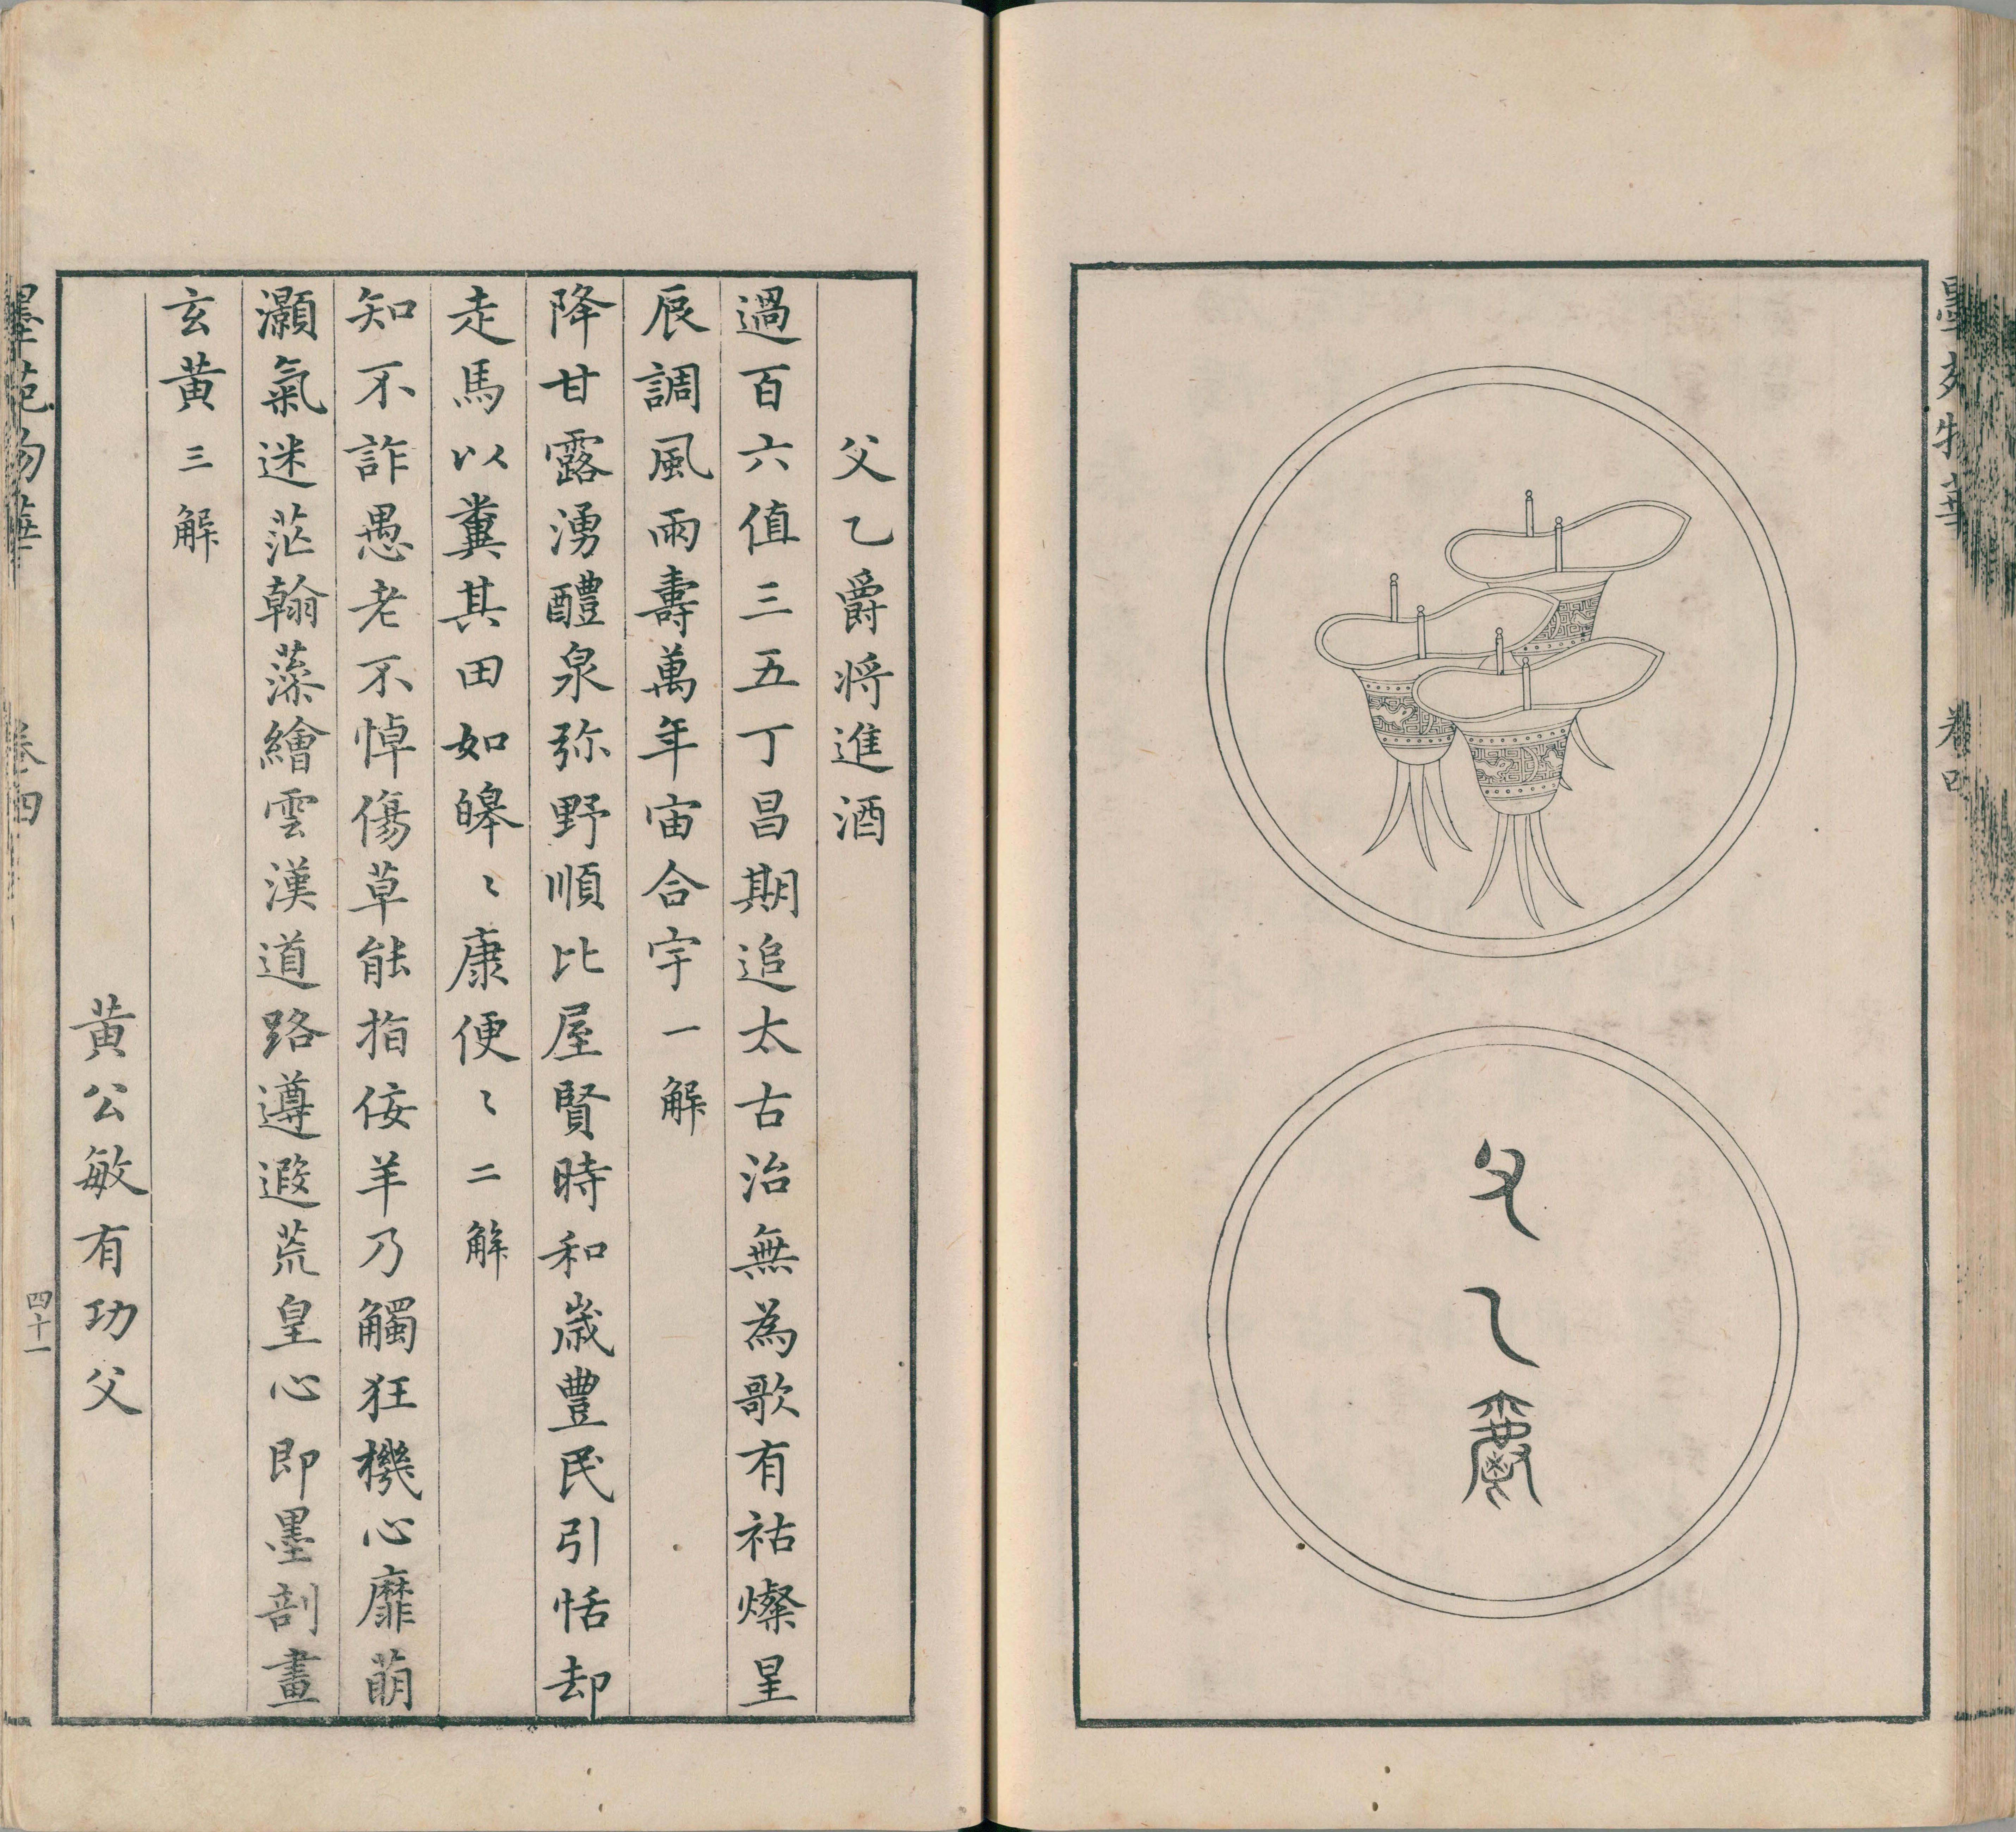 墨苑物華
卷四
父乙爵
父乙爵將進酒
過百六值三五丁昌期追太古治無為歌有祜燦呈
辰調風雨壽萬年宙合宇一解
降甘露湧醴泉弥野順比屋賢時和歲豐民引恬却
走馬以糞其田如皞〻康便〻二解
知不詐愚老不悼傷草能指佞羊乃觸狂機心靡萌
灝氣迷茫翰藻繪雲漢道路遵遐荒皇心即墨剖畫
玄黃三解
黃公敏有功父
墨苑物華
卷四
四十一